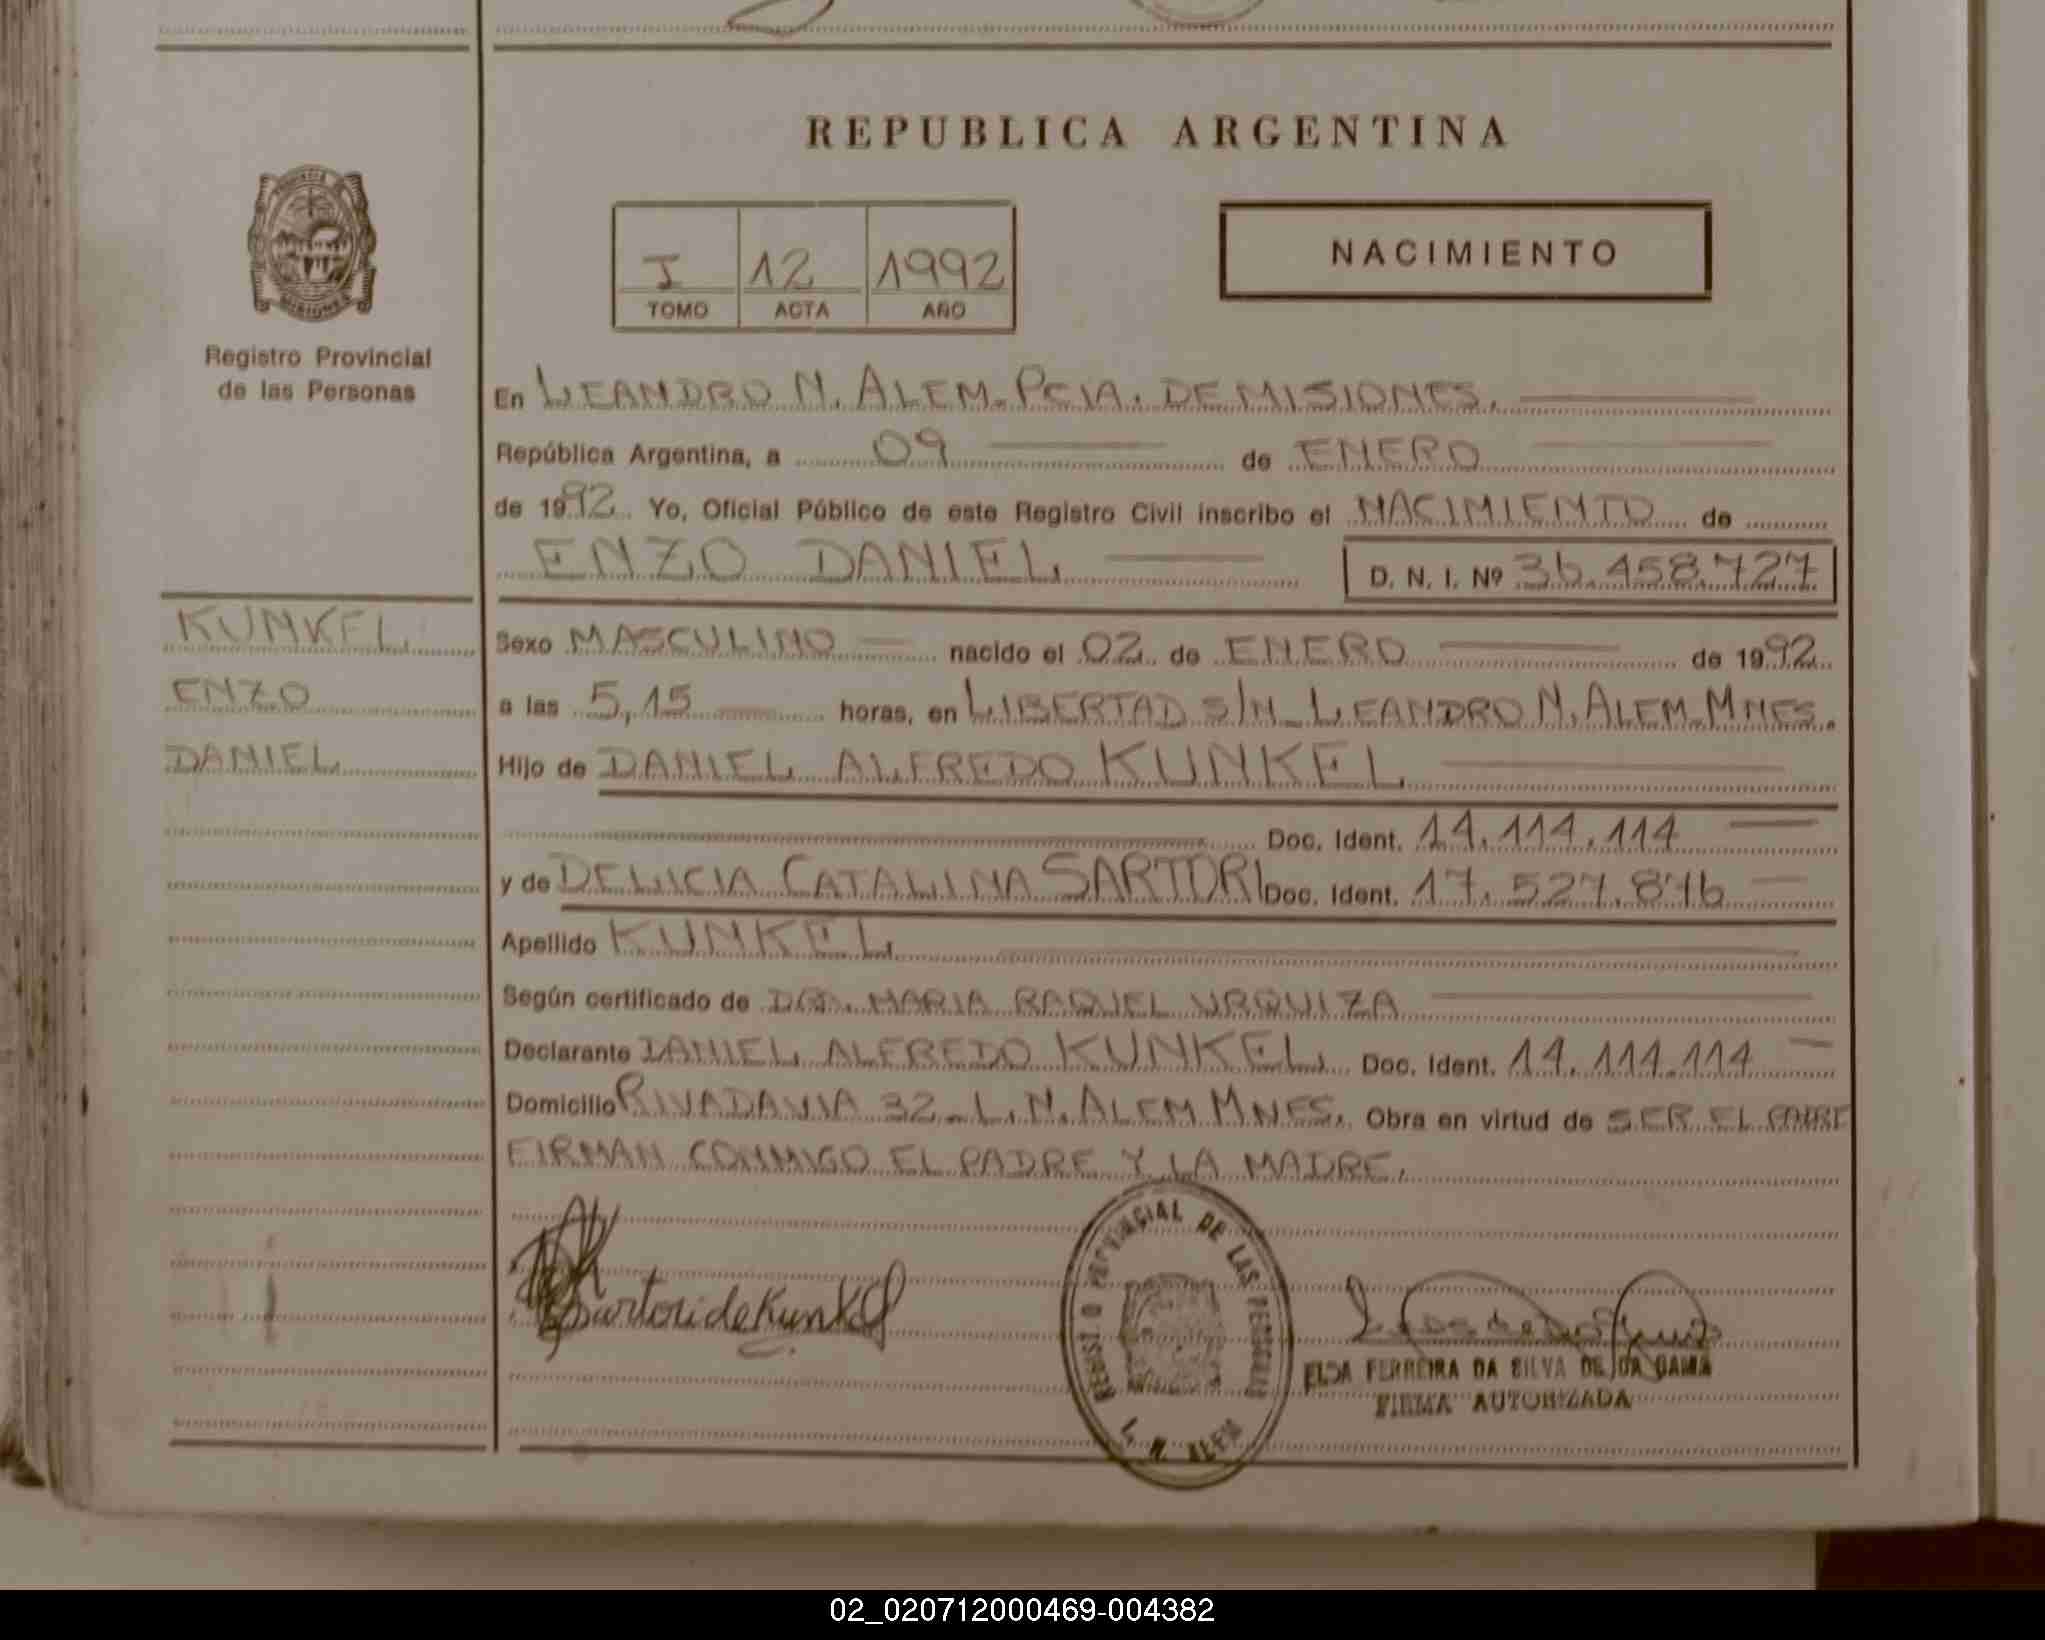 REPUBLICA ARGENTINA
PROVINCIA DE
MISIONES
Registro Provincial
de las Personas
I 12 1992
TOMO ACTA AÑO
NACIMIENTO
En LEANDRO N. ALEM_PCIA. DE MISIONES.
República Argentina, a 09 de ENERO
de 1992 Yo, Oficial Público de este Registro Civil inscribo el NACIMIENTO de
ENZO DANIEL D. N. I. Nº 36.458.727
KUNKEL
ENZO
DANIEL
Sexo MASCULINO nacido el 02 de ENERO de 1992
a las 5,15 horas, en LIBERTAD S/N_LEANDRO N. ALEM_MNES.
Hijo de DANIEL ALFREDO KUNKEL
Doc. Ident. 14.114.114
y de DELICIA CATALINA SARTORI Doc. Ident. 17.527.876
Apellido KUNKEL
Según certificado de DRA. MARIA RAQUEL URQUIZA
Declarante DANIEL ALFREDO KUNKEL Doc. Ident. 14.114.114
Domicilio RIVADAVIA 32_L.N. ALEM MNES. Obra en virtud de SER EL PADRE
FIRMAN CONMIGO EL PADRE Y LA MADRE.
Sartori de Kunkel
REGISTRO PROVINCIAL DE LAS PERSONAS
L. N. ALEM
ELDA FERREIRA DA SILVA DE DA GAMA
FIRMA AUTORIZADA
02_020712000469-004382